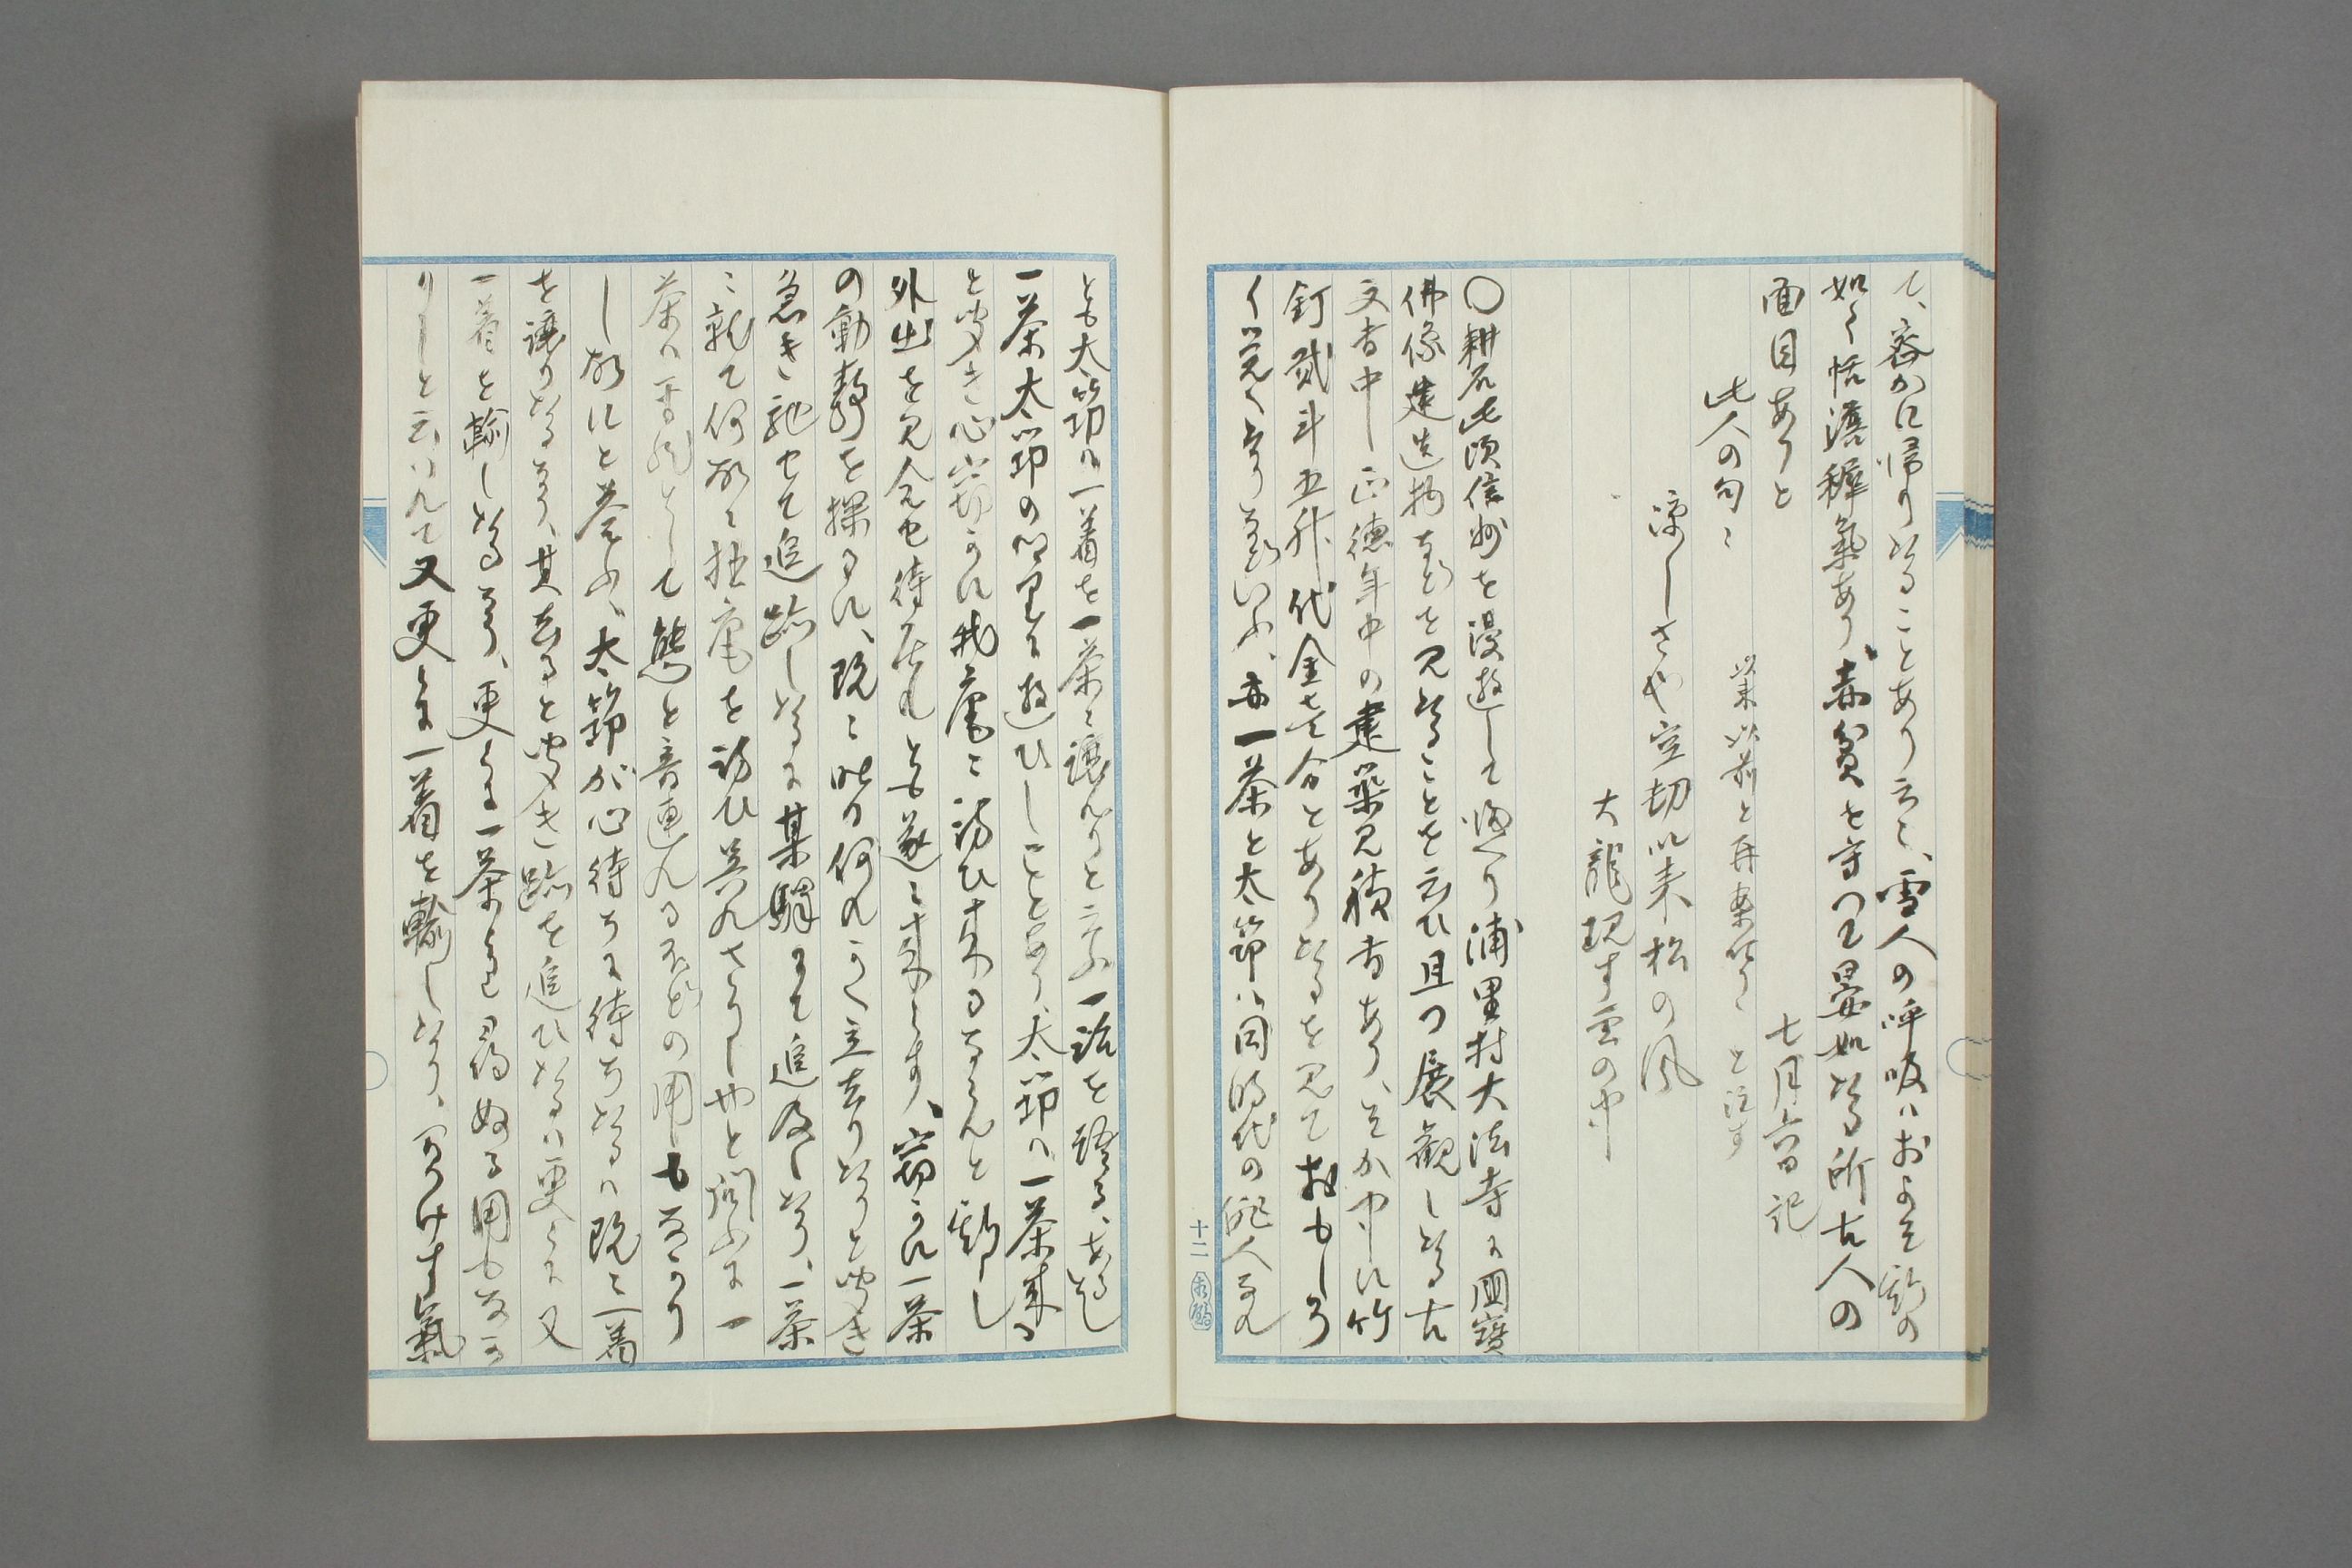 て、密かに帰りけることあり云々、雪人の呼吸はおよそ斯の
如く恬澹穉氣あり、赤貧を守つて晏如ける所古人の
面目ありと　七月六日記
此人の句に
涼しさや空劫以来松の風
以来以前と再案 と注す
大龍現す雲の中
〇耕石此頃信州を漫遊して帰り浦里村大法寺に国寶
佛像建造物などを見けることを云ひ且つ展観しける古
文書中 正徳年中の建築見積書あり、そが中に竹
釘貮斗五升代金壱分とありけるを見ておもしろ
く覚えけりなどいふ、亦一茶と太笻は同時代の俳人なれ
とも太笻は一着を一茶に譲れりと云ふ一話を語る、あるし
一茶太笻の郷里に遊ひしことあり、太笻は一茶来る
と聞き心窃かに我庵に訪ひ来るならんと期し
外出を見合せ待居れとも遂に来らす、窃かに一茶
の動静を探るに、既に此の何れかへ立去りけりと聞き
急き馳せて追跡しけるに某驛にて追及しけり、一茶
に就て何故に拙庵を訪ひ呉れさりしやと問ふに一
茶は平然として態と音連れる程の用もなかり
し故にと答ふ、太笻が心待ちに待ちけるは既に一着
を譲りけるなり、其去ると聞き跡を追ひけるは更に又
一着を輸しけるなり、更に一茶に尋ぬる用もなか
りしと云はれて又更に一着を輸しけり、 氣
十二